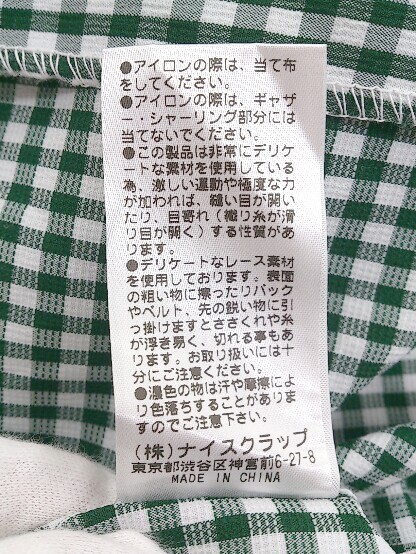 ●アイロンの際は、当て布
をしてください。
●アイロンの際は、ギャザ
ー・シャーリング部分には
当てないでください。
●この製品は非常にデリケ
ートな素材を使用している
為、激しい運動や極度な力
が加われば、縫い目が開い
たり、目寄れ（織り糸が滑
り目が開く）する性質があ
ります。
●デリケートなレース素材
を使用しております。表面
の粗い物に擦ったりバック
やベルト、先の鋭い物に引
っ掛けますとささくれや糸
が浮き易く、切れる事もあ
ります。お取り扱いには十
分にご注意ください。
●濃色の物は汗や摩擦によ
り色落ちすることがありま
すのでご注意下さい。
（株）ナイスクラップ
東京都渋谷区神宮前6-27-8
MADE IN CHINA